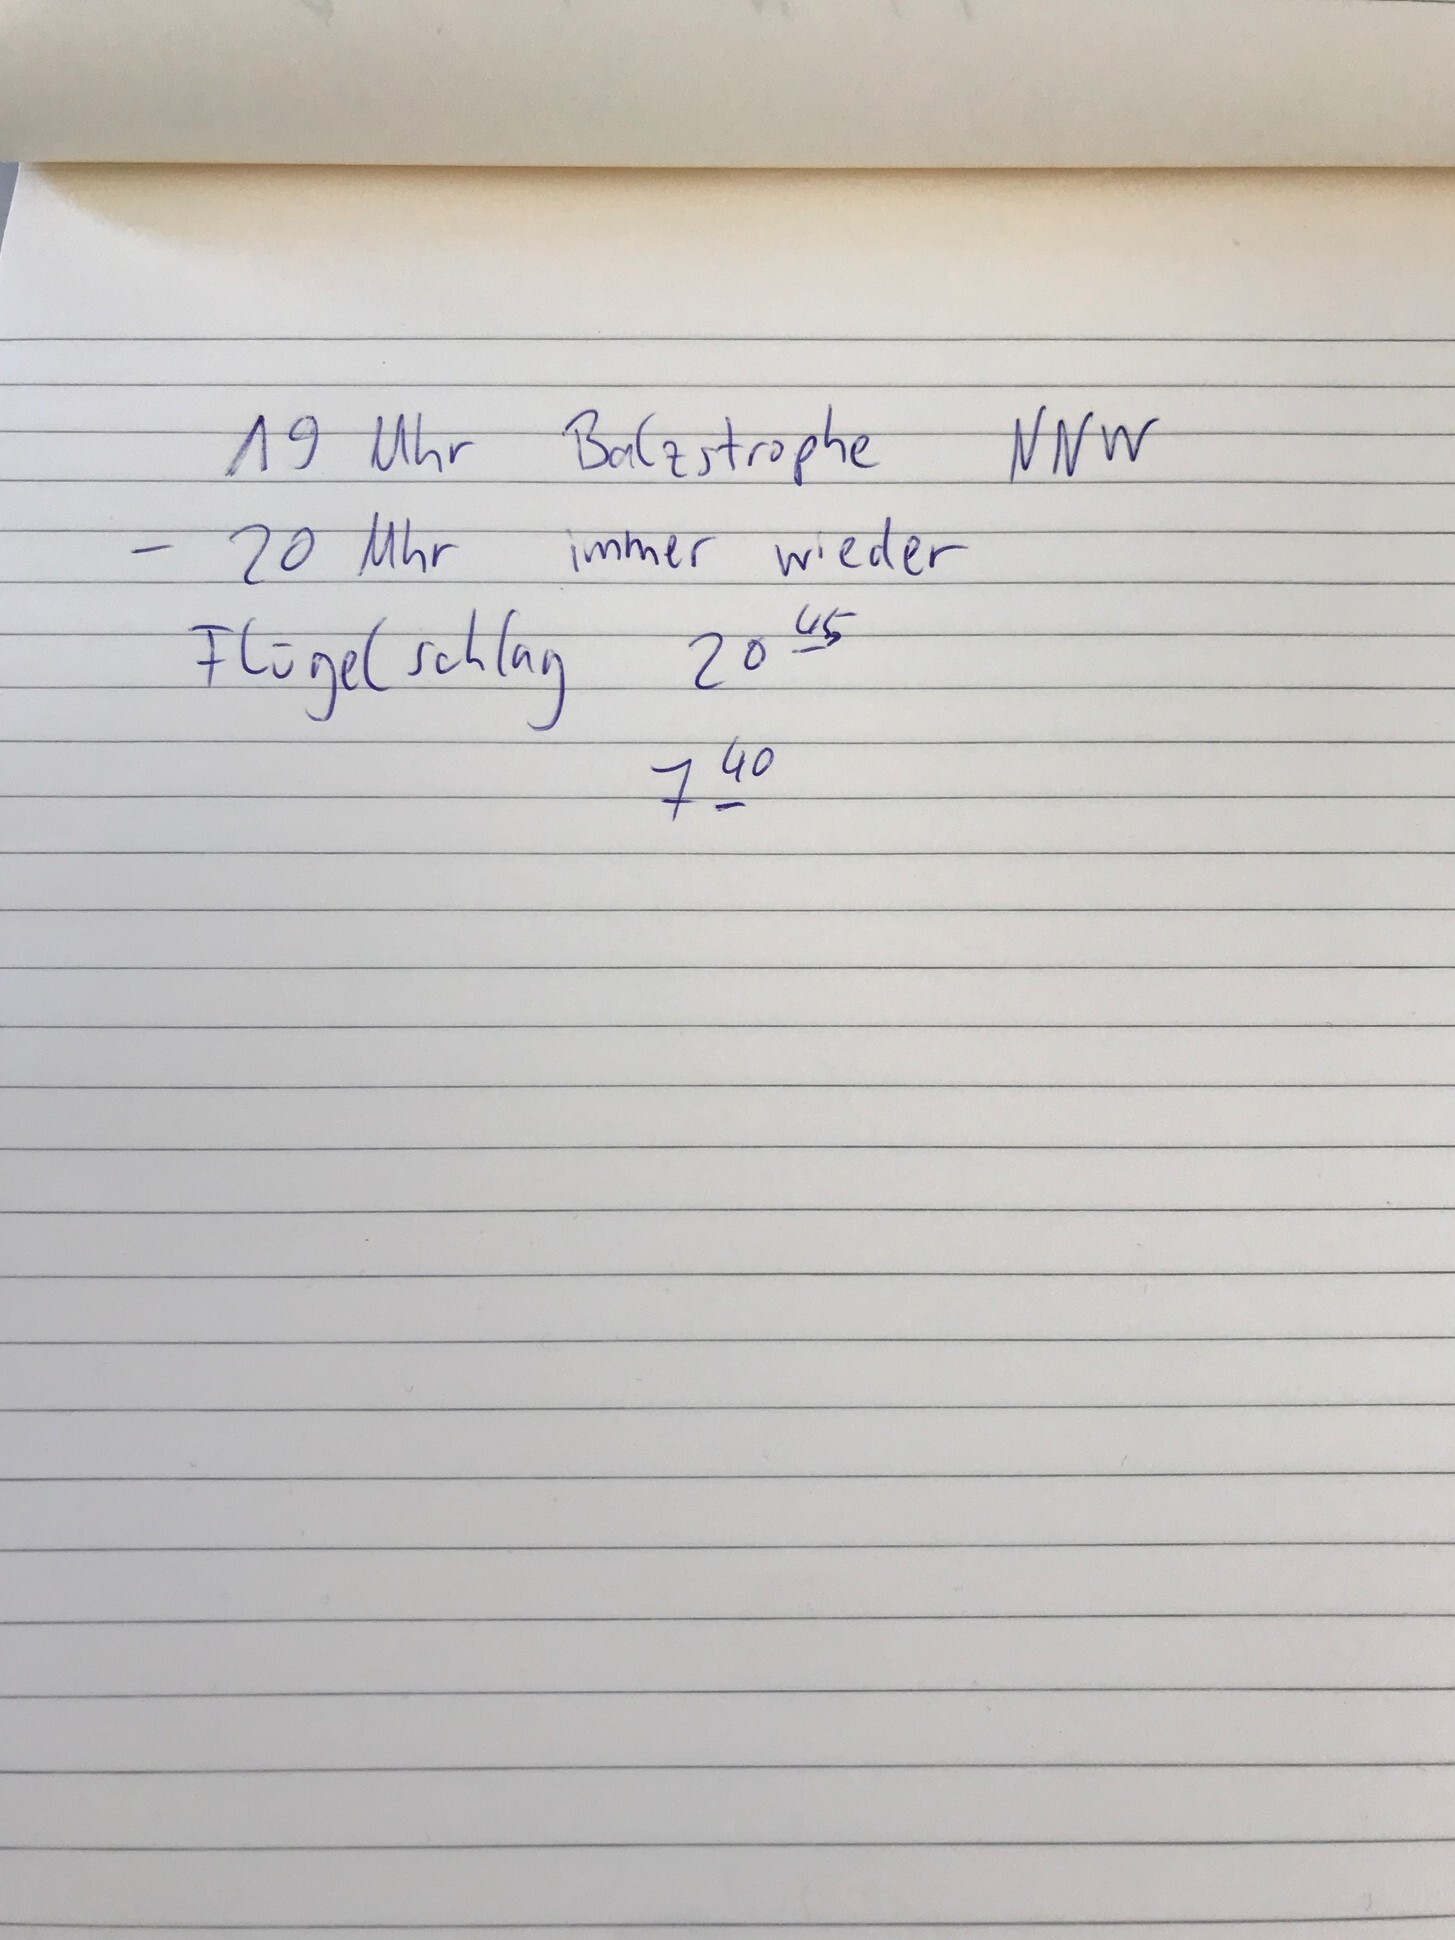 19 Uhr Balzstrophe NNW
- 20 Uhr immer wieder
Flügelschlag 20 45
7 40